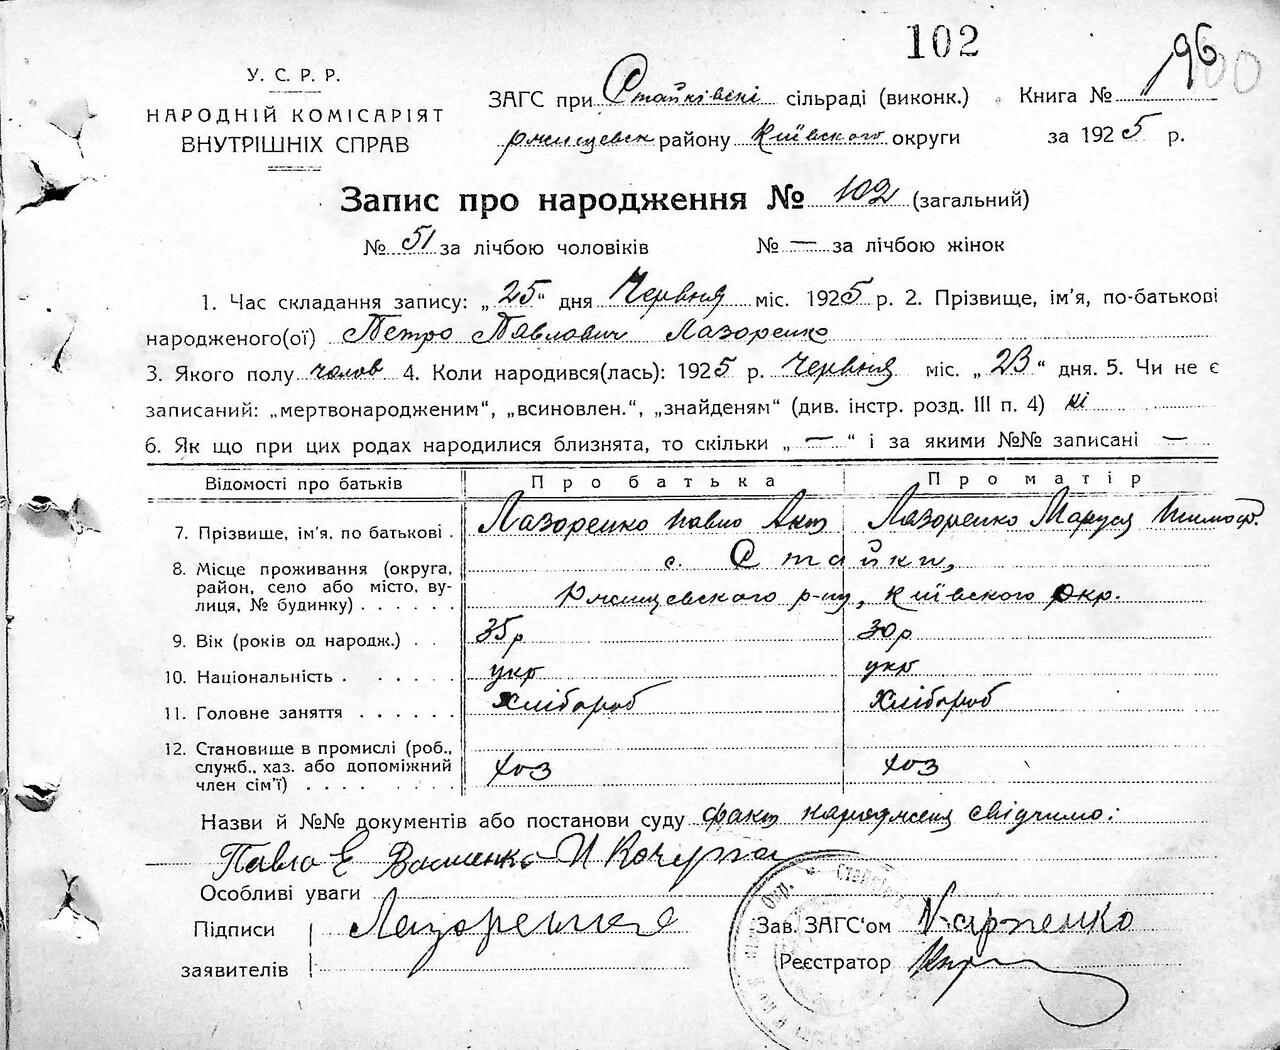 102
196
У. С. Р. Р.
НАРОДНІЙ КОМІСАРІЯТ
ВНУТРІШНІХ СПРАВ
ЗАГС при Стайківскі сільраді (виконк.) Книга №
ржищевск району Київского округи за 1925 р.
Запис про народження № 102 (загальний)
№ 51 за лічбою чоловіків № — за лічбою жінок
1. Час складання запису: „25“ дня Червня міс. 1925 р. 2. Прізвище, ім'я, по-батькові
народженого(ої) Петро Павлович Лазоренко
3. Якого полу чолов 4. Коли народився(лась): 1925 р. Червня міс. „23“ дня. 5. Чи не є
записаний: „мертвонародженим“, „всиновлен.“, „знайденям“ (див. інстр. розд. III п. 4) ні
6. Як що при цих родах народилися близнята, то скільки „—“ і за якими №№ записані —
Відомості про батьків Про батька Про матір
7. Прізвище, ім'я, по батькові . Лазоренко Павло Ант Лазоренко Маруся Тимоф.
8. Місце проживання (округа, с. Стайки,
район, село або місто, ву-
лиця, № будинку) . . . . . . Ржищевского р-ну, Київского Окр.
9. Вік (років од народж.) . . 35р 30р
10. Національність . . . . . . укр укр
11. Головне заняття . . . . . . Хлібороб Хлібороб
12. Становище в промислі (роб.,
служб., хаз. або допоміжний хоз хоз
член сім'ї) . . . . . . . .
Назви й №№ документів або постанови суду факт народженя свідчимо:
Павло Е И Кочерга
Особливі уваги
Підписи Лазоренко Зав. ЗАГС'ом Карпенко
заявителів Реєстратор